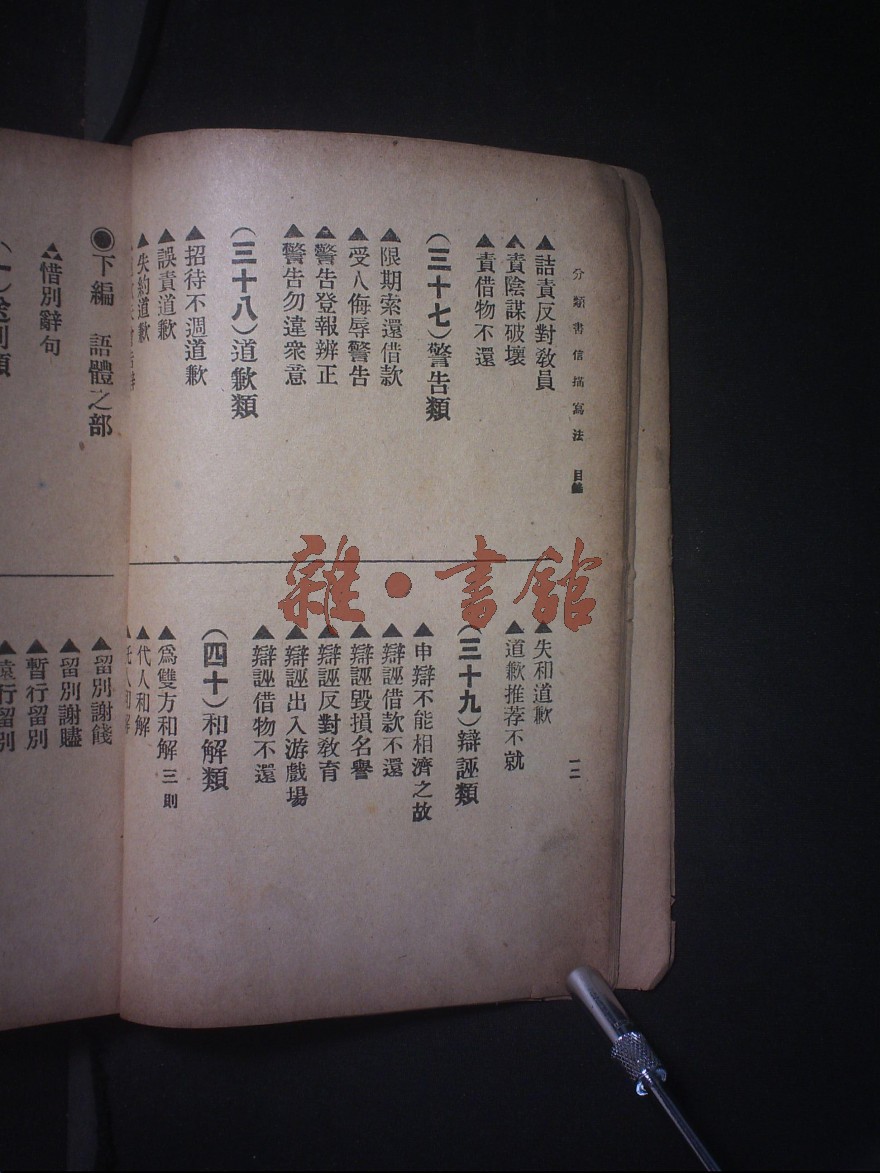 分類書信描寫法 目錄
▲詰責反對敎員
▲責陰謀破壞
▲責借物不還
（三十七）警告類
▲限期索還借款
▲受人侮辱警告
▲警告登報辨正
▲警告勿違衆意
（三十八）道歉類
▲招待不週道歉
▲誤責道歉
▲失約道歉
一二
▲失和道歉
▲道歉推荐不就
（三十九）辯誣類
▲申辯不能相濟之故
▲辯誣借款不還
▲辯誣毀損名譽
▲辯誣反對敎育
▲辯誣出入游戲場
▲辯誣借物不還
（四十）和解類
▲爲雙方和解三則
▲代人和解
▲託人和解
◉下編 語體之部
惜別辭句
（一）送別類
▲留別謝餞
▲留別謝贐
▲暫行留別
▲遠行留別
雜·書館